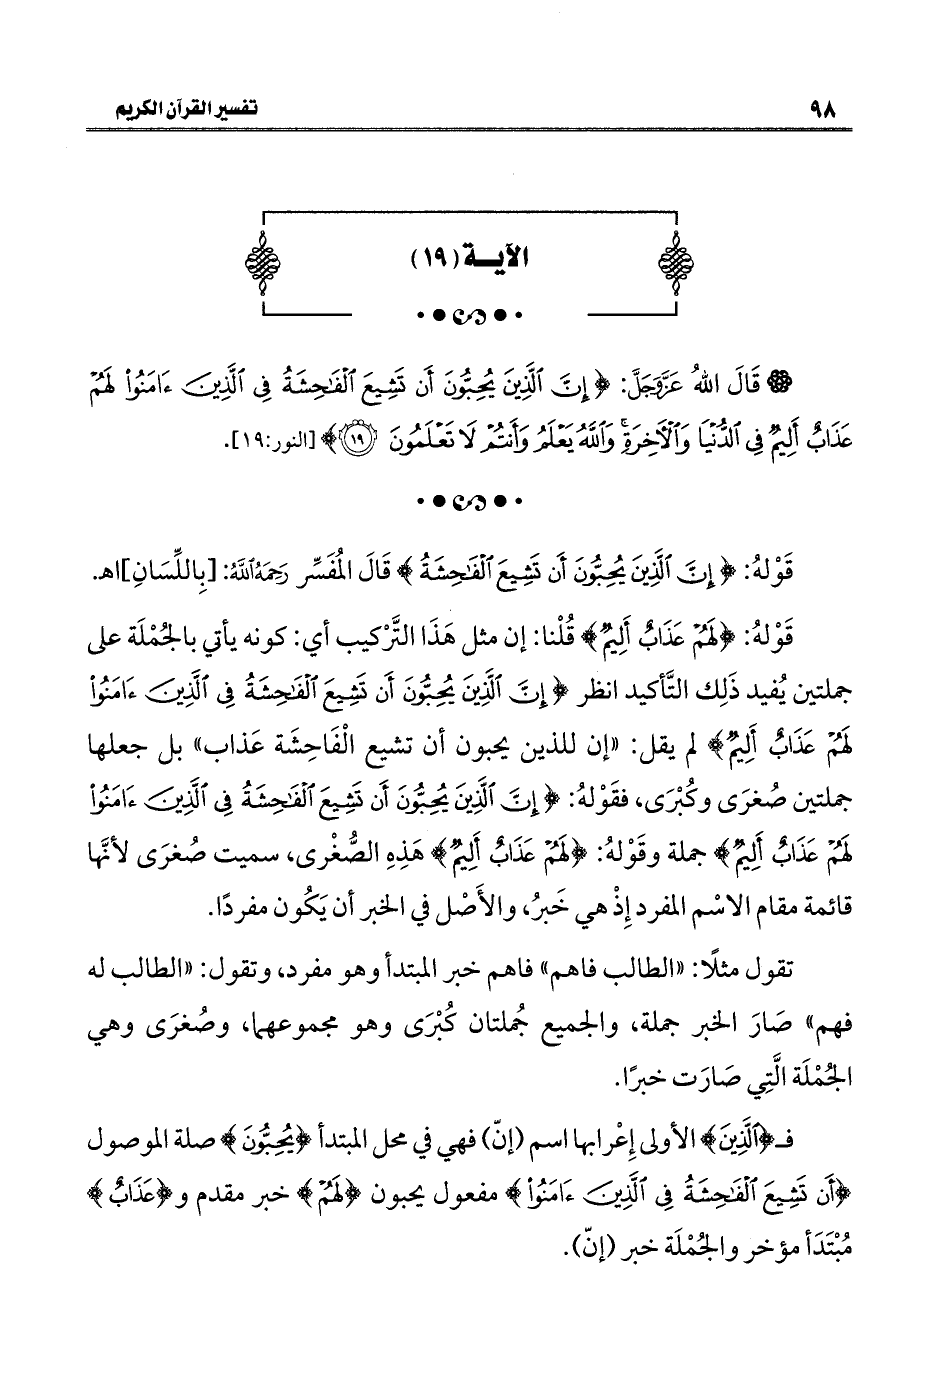 ٩٨ تفسير القرآن الكريم
الآيــة (١٩)
قَالَ اللهُ عَزَّوَجَلَّ: ﴿إِنَّ ٱلَّذِينَ يُحِبُّونَ أَن تَشِيعَ ٱلْفَٰحِشَةُ فِى ٱلَّذِينَ ءَامَنُوا۟ لَهُمْ
عَذَابٌ أَلِيمٌ فِى ٱلدُّنْيَا وَٱلْءَاخِرَةِ ۚ وَٱللَّهُ يَعْلَمُ وَأَنتُمْ لَا تَعْلَمُونَ ١٩﴾ [النور:١٩].
قَوْلهُ: ﴿إِنَّ ٱلَّذِينَ يُحِبُّونَ أَن تَشِيعَ ٱلْفَٰحِشَةُ﴾ قَالَ المُفَسِّر رَحِمَهُ اللَّهُ: [بِاللِّسَانِ]اهـ.
قَوْلهُ: ﴿لَهُمْ عَذَابٌ أَلِيمٌ﴾ قُلْنا: إن مثل هَذَا التَّرْكيب أي: كونه يأتي بالجُمْلَة على
جملتين يُفيد ذَلِك التَّأكيد انظر ﴿إِنَّ ٱلَّذِينَ يُحِبُّونَ أَن تَشِيعَ ٱلْفَٰحِشَةُ فِى ٱلَّذِينَ ءَامَنُوا۟
لَهُمْ عَذَابٌ أَلِيمٌ﴾ لم يقل: «إن للذين يحبون أن تشيع الْفَاحِشَة عَذاب» بل جعلها
جملتين صُغرَى وكُبْرَى، فقَوْلهُ: ﴿إِنَّ ٱلَّذِينَ يُحِبُّونَ أَن تَشِيعَ ٱلْفَٰحِشَةُ فِى ٱلَّذِينَ ءَامَنُوا۟
لَهُمْ عَذَابٌ أَلِيمٌ﴾ جملة وقَوْلهُ: ﴿لَهُمْ عَذَابٌ أَلِيمٌ﴾ هَذِهِ الصُّغْرى، سميت صُغرَى لأنَّها
قائمة مقام الاسْم المفرد إذْ هي خَبرُ، والأَصْل في الخبر أن يَكُون مفردًا.
تقول مثلًا: «الطالب فاهم» فاهم خبر المبتدأ وهو مفرد، وتقول: «الطالب له
فهم» صَارَ الخبر جملة، والجميع جُملتان كُبْرَى وهو مجموعهما، وصُغرَى وهي
الجُمْلَة الَّتِي صَارَت خبرًا.
فـ﴿ٱلَّذِينَ﴾ الأولى إعْرابها اسم (إنّ) فهي في محل المبتدأ ﴿يُحِبُّونَ﴾ صلة الموصول
﴿أَن تَشِيعَ ٱلْفَٰحِشَةُ فِى ٱلَّذِينَ ءَامَنُوا۟﴾ مفعول يحبون ﴿لَهُمْ﴾ خبر مقدم و﴿عَذَابٌ﴾
مُبْتَدَأ مؤخر والجُمْلَة خبر (إنّ).